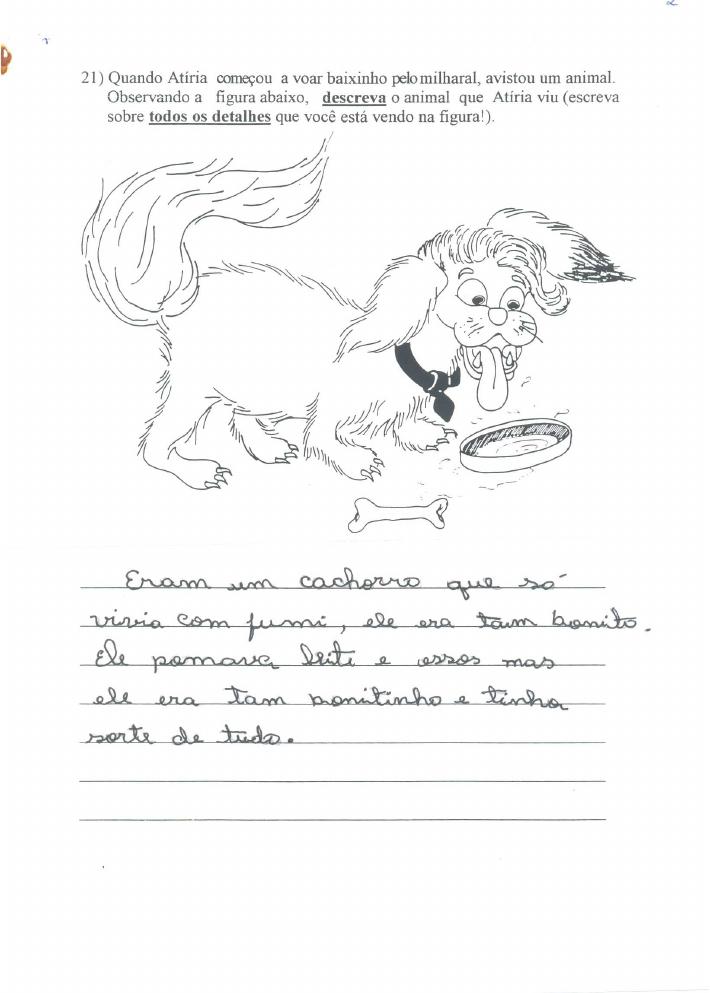 21) Quando Atíria começou a voar baixinho pelo milharal, avistou um animal.
Observando a figura abaixo, descreva o animal que Atíria viu (escreva
sobre todos os detalhes que você está vendo na figura!).
Eram um cachorro que só
vivia com fumi, ele era taum bonito.
Ele pomava leite e ossos mas
ele era tam bonitinho e tinha
sorte de tudo.